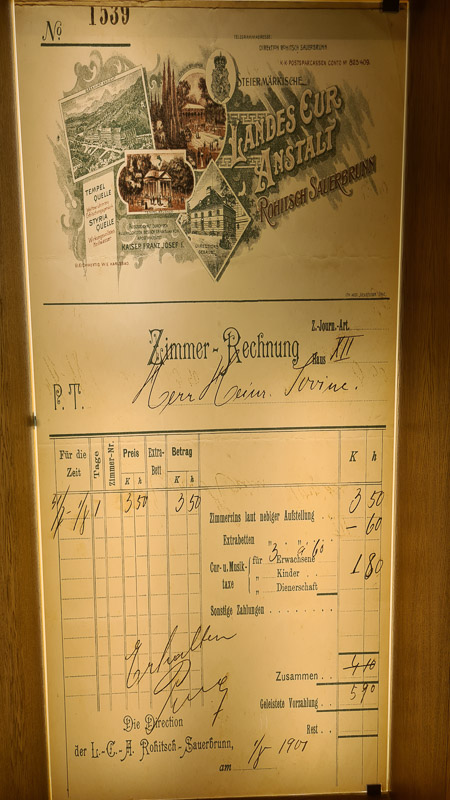 No 1539
TELEGRAMMADRESSE:
DIREKTION ROHITSCH SAUERBRUNN
K.K. POSTSPARCASSEN CONTO No 825.409.
STEIERMÄRKISCHE
LANDES CUR
ANSTALT
ROHITSCH SAUERBRUNN
TEMPEL
QUELLE
STYRIA
QUELLE
KAISER FRANZ JOSEF I.
DIRECTIONS
GEBÄUDE
Z.-Journ.-Art.
Zimmer-Rechnung
Haus XII
P. T. Herr Heinr.
Für die Zeit Tage Zimmer-Nr. Preis Extra-Bett Betrag K h
K h K h
1 3 50 3 50
Zimmerzins laut nebiger Aufstellung . . 3 50
Extrabetten " . " . . — 60
Cur- u. Musik-taxe für 3 Erwachsene à 60 1 80
" Kinder . .
" Dienerschaft
Sonstige Zahlungen . . . . . . . .
Erhalten
Zusammen . .
Geleistete Vorzahlung . . 5 90
Rest . .
Die Direction
der L.-C.-A. Rohitsch-Sauerbrunn,
am 1901